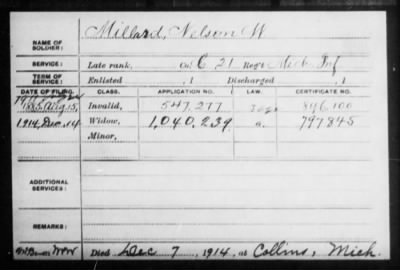 NAME OF SOLDIER: Millard, Nelson W
SERVICE: Late rank, Co. C, 21 Reg't Mich Inf
TERM OF SERVICE: Enlisted , 1 Discharged , 1
DATE OF FILING. CLASS. APPLICATION NO. LAW. CERTIFICATE NO.
Aug 15, Invalid, 547,277 846,100
1914, Dec. 14 Widow, 1,040,239 a. 797845
Minor,
ADDITIONAL SERVICES:
REMARKS:
Died Dec 7, 1914, at Collins, Mich.